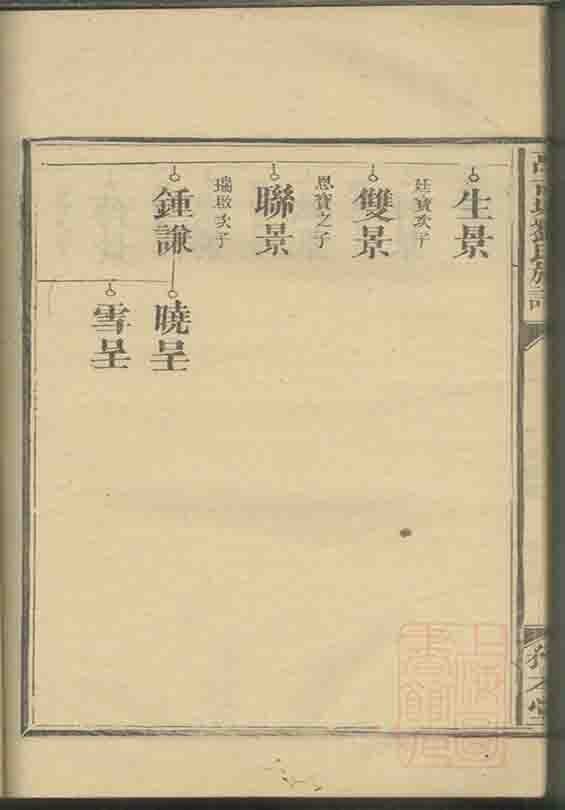 生景
廷寶次子
雙景
恩寶之子
聯景
瑞啟次子
鍾謙
曉呈
雪呈
上海圖
書館藏